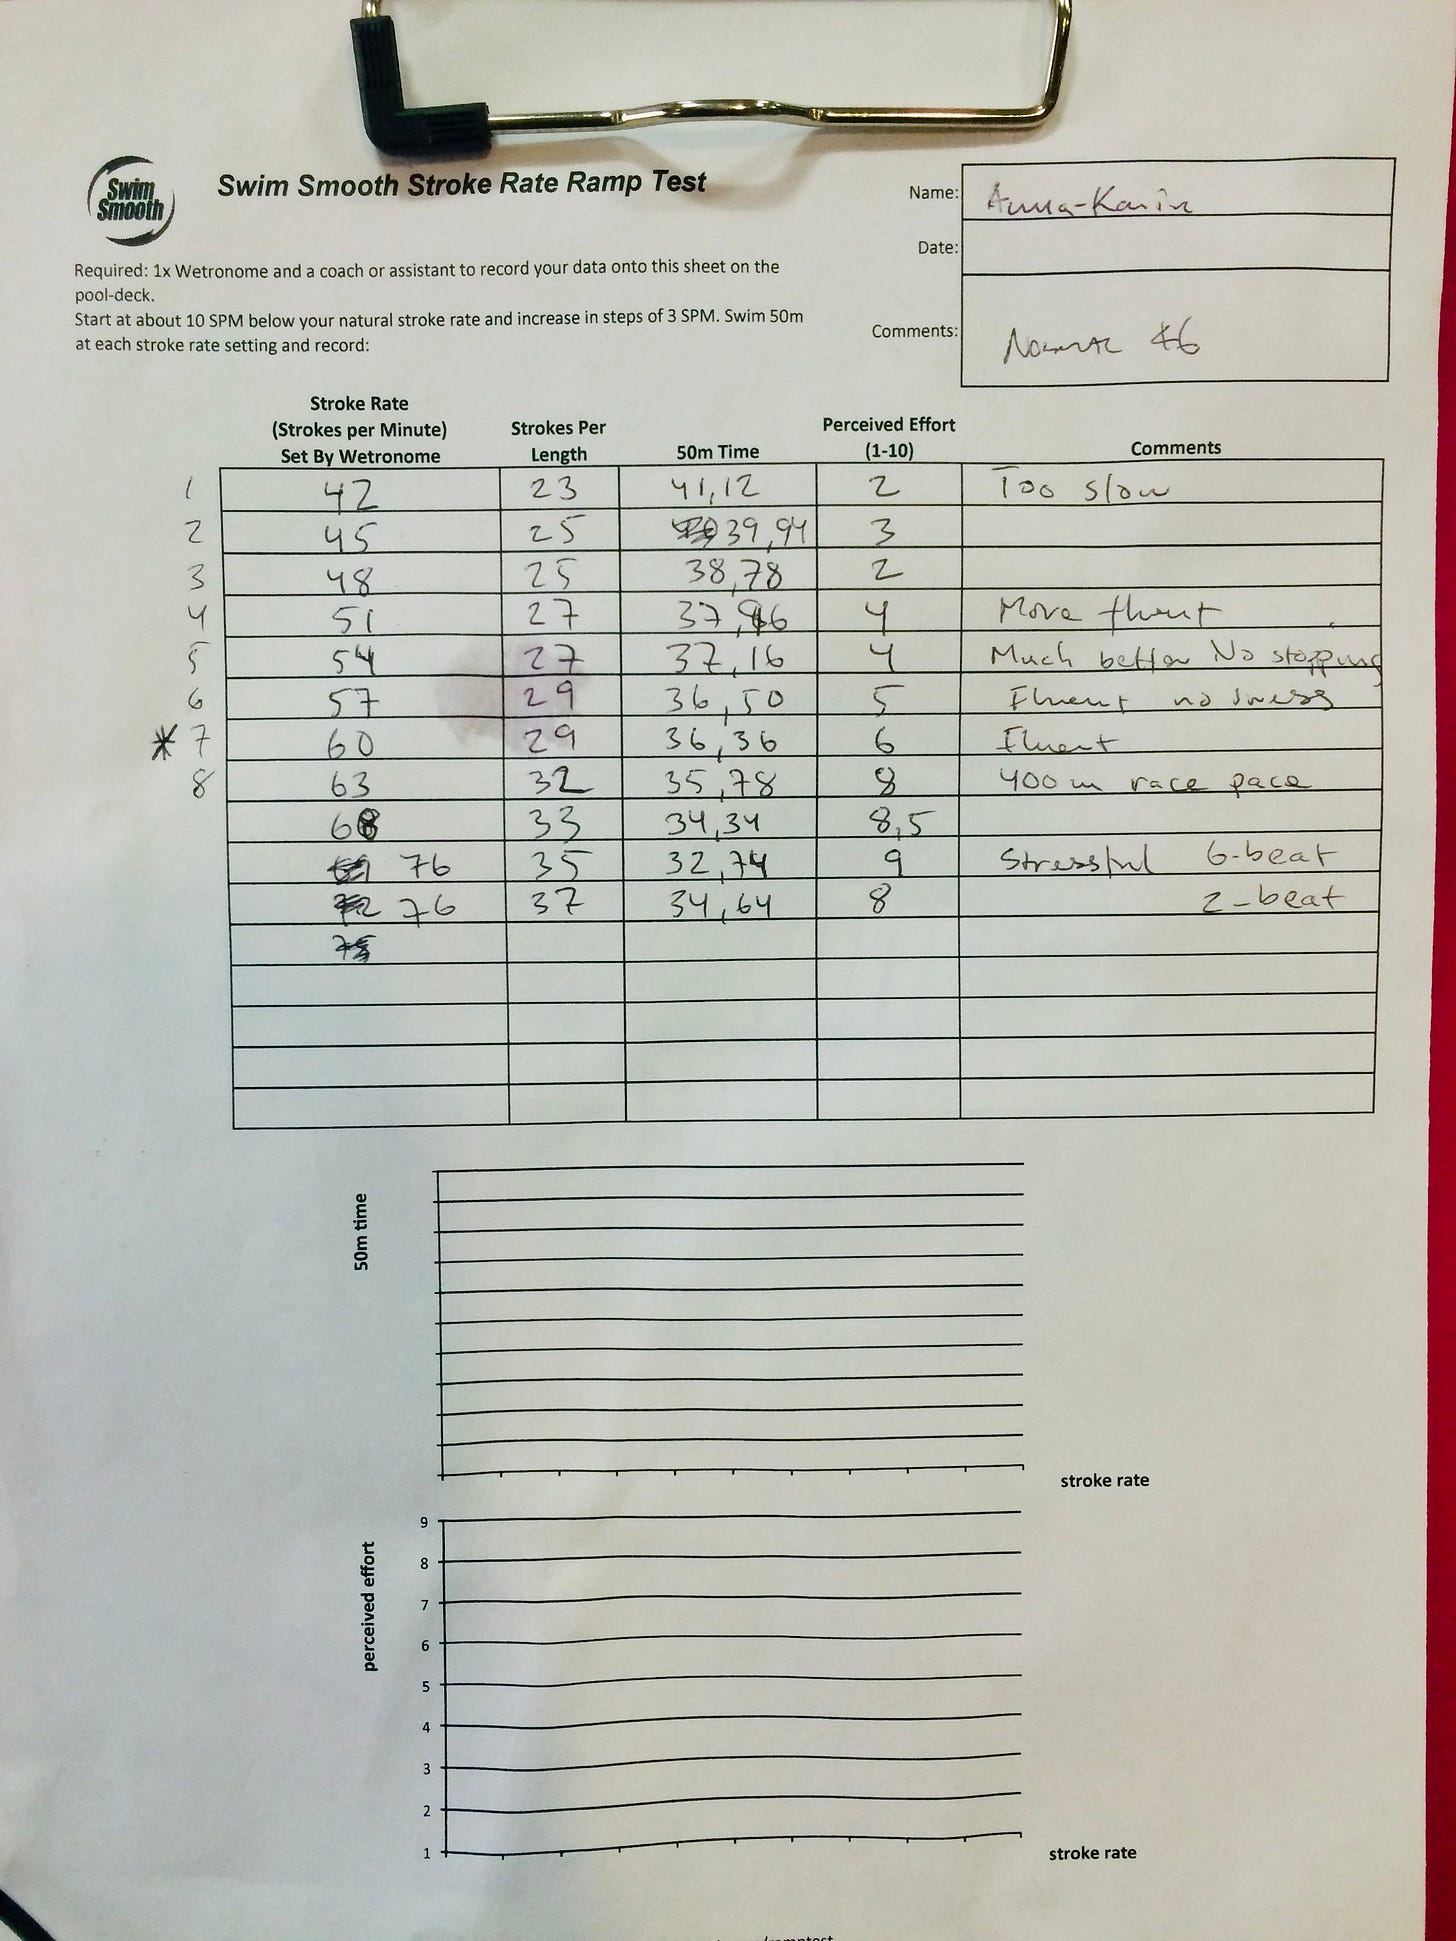 Swim Smooth
Swim Smooth Stroke Rate Ramp Test
Name: Anna-Karin
Date:
Comments: Normal 46
Required: 1x Wetronome and a coach or assistant to record your data onto this sheet on the
pool-deck.
Start at about 10 SPM below your natural stroke rate and increase in steps of 3 SPM. Swim 50m
at each stroke rate setting and record:
Stroke Rate (Strokes per Minute) Set By Wetronome Strokes Per Length 50m Time Perceived Effort (1-10) Comments
1 42 23 41,12 2 Too slow
2 45 25 39,94 3
3 48 25 38,78 2
4 51 27 37, 4 More fluent
5 54 27 37,16 4 Much better No stopping
6 57 29 36,50 5 Fluent no stress
* 7 60 29 36,36 6 Fluent
8 63 32 35,78 8 400m race pace
33 34,34 8,5
76 35 32,74 9 Stressful 6-beat
76 37 34,64 8 2-beat
50m time
stroke rate
perceived effort
9
8
7
6
5
4
3
2
1
stroke rate